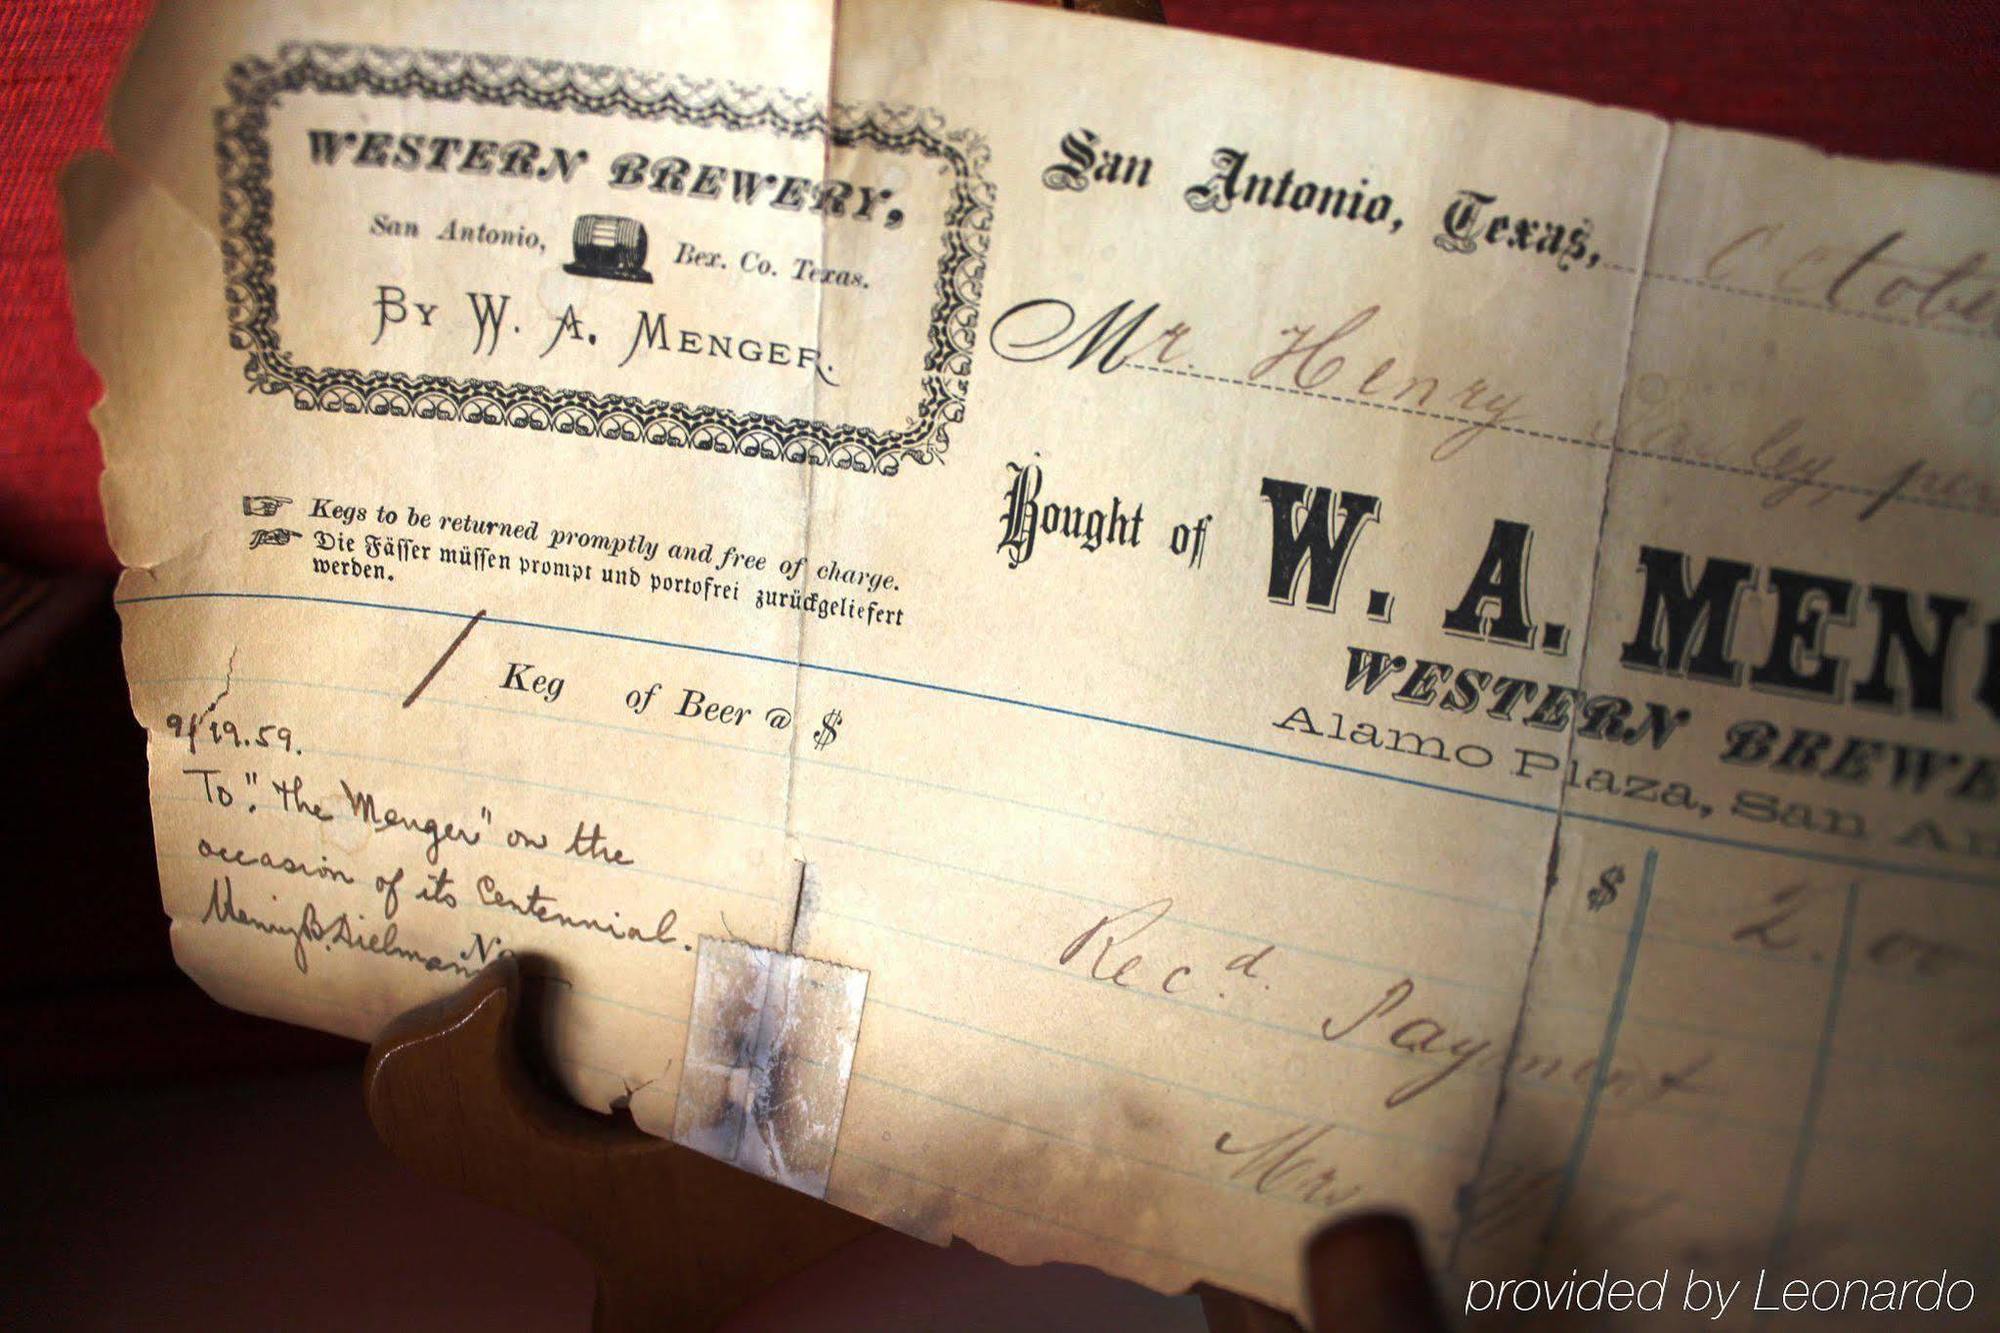 WESTERN BREWERY,
San Antonio, Bex. Co. Texas.
BY W. A. MENGER.
Kegs to be returned promptly and free of charge.
Die Fässer müssen prompt und portofrei zurückgeliefert
werden.
San Antonio, Texas, Octobe
Mr. Henry
Bought of W. A. MENG
WESTERN BREWE
Alamo Plaza, San An
/ Keg of Beer @ $
$ 2. 00
9/19.59.
To "The Menger" on the
occasion of its Centennial.
Henry B. Dielmann
No
Rec.d Payment
Mrs
provided by Leonardo